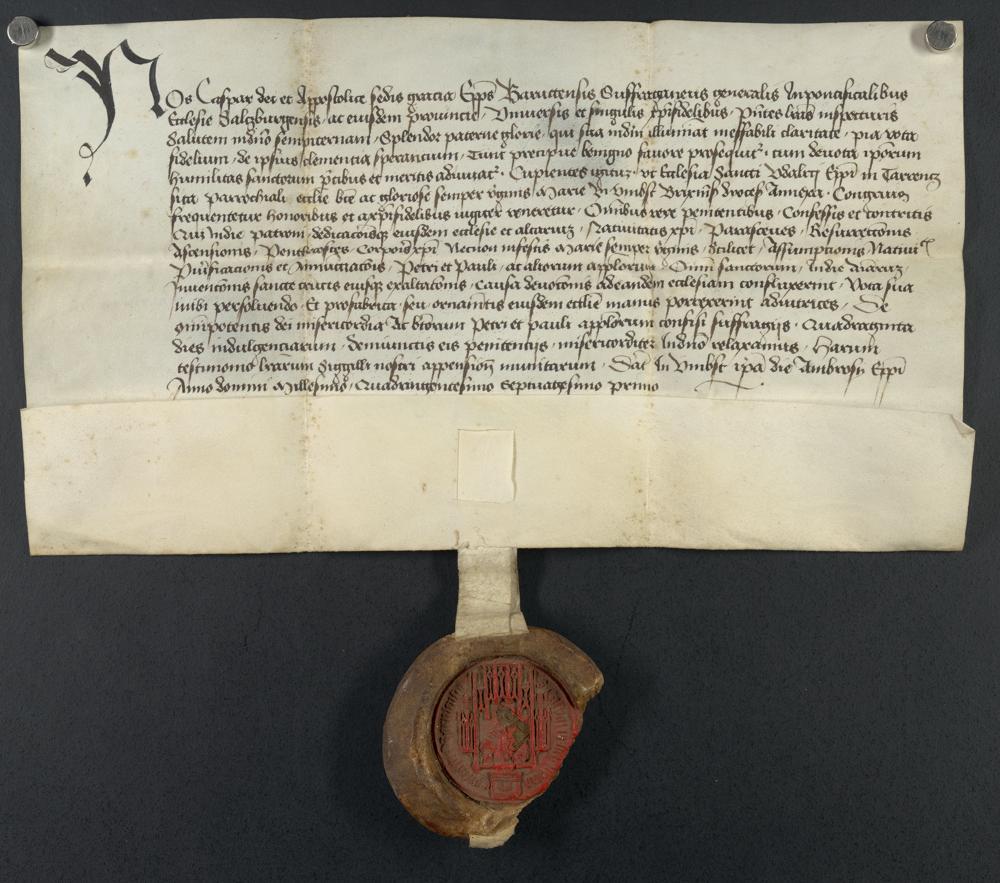 Nos Caspar dei et Appostolice sedis gracia Epps Baruttensis Suffraganeus generalis Inpontificalibus
Ecclesie Salczburgensis, ac eiusdem provincie, Universis et singulis xpifidelibus, Pntes lras inspecturis
Salutem in dno sempiternam, Splendor paterne glorie, qui sua mdm illuminat ineffabili claritate, pia vota
fidelium, de ipsius clementia sperancium, Tunc precipue benigno favore prosequit, cum devota iporum
humilitas sanctorum pcibus et meritis adiuvat, Cupientes igitur, ut Ecclesia Sancti Udalrici Eppi in Tarrentz
sita parrochiali ecclie bte ac gloriose semper vginis Marie In Umbst Brixins dioces Annexa, Congruis
frequentetur honoribus et a xpifidelibus iugiter veneretur, Omnibus vere penitentibus, Confessis et contritis
Qui Indie patroni, dedicacionisque eiusdem ecclesie et altarium, Nativitatis xpi, Parasceves, Resurrectionis
Ascensionis, Penthecostes, Corporis xpi, Necnon infestis Marie semper vginis, scilicet, Assumptionis Nativi
Purificacionis et Annunctiacois, Petri et Pauli, ac aliorum applorum, Omni sanctorum, Indie
Invencionis sancte crucis eiusque exaltacionis, Causa devocionis ad eandem ecclesiam confluxerint, Vota sua
inibi persolvendo, Et pro fabrica, seu ornamentis eiusdem ecclie manus porrexerint adiutrices, De
omnipotentis dei misericordia Ac btorum Petri et pauli applorum confisi suffragijs, Quadraginta
dies indulgenciarum, de iniunctis eis penitencijs, misericorditer In dno relaxamus, Harum
testimonio lrarum Sigilli nostri appension munitarum, Dat In Umbst ipa die Ambrosij Eppi
Anno domini Millesimo, Quadringentesimo Septuagesimo primo